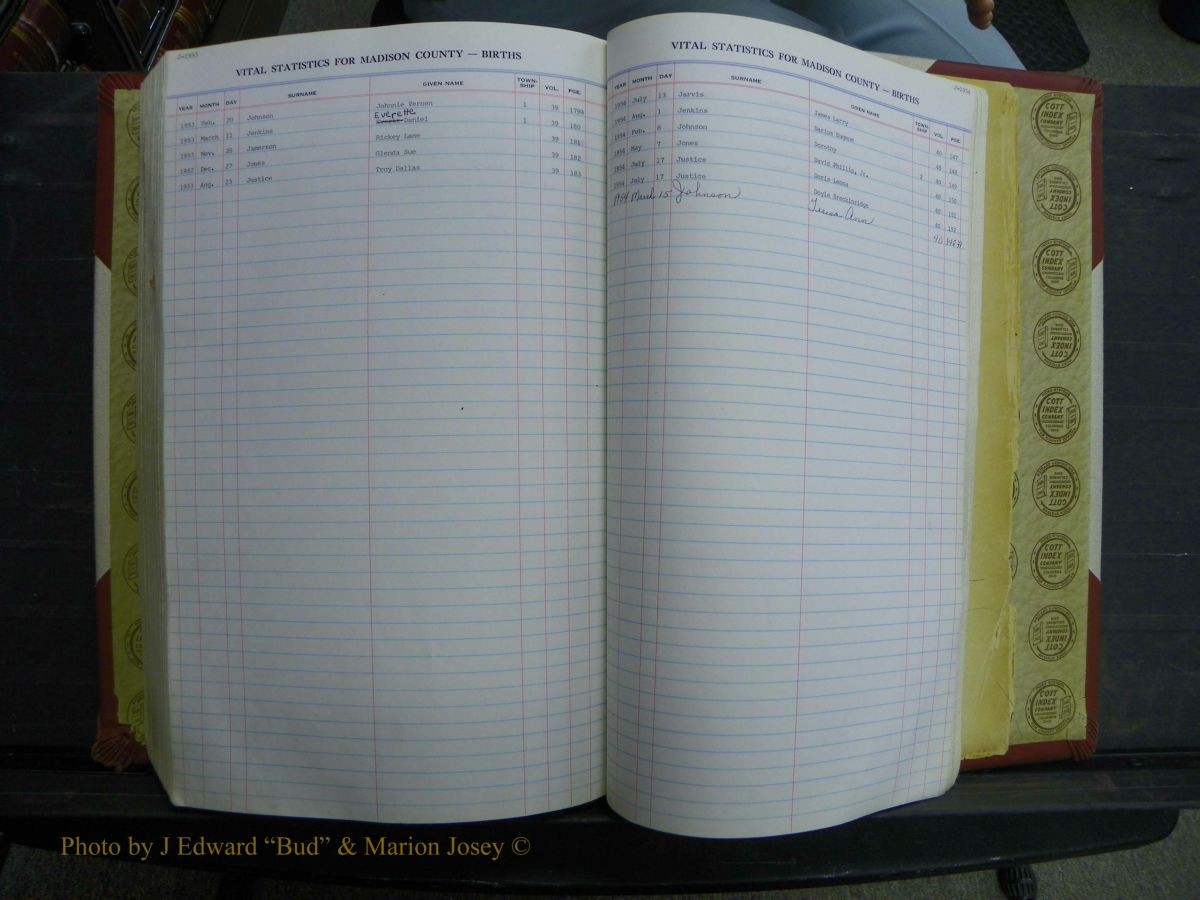 J-1953
VITAL STATISTICS FOR MADISON COUNTY — BIRTHS
YEAR MONTH DAY SURNAME GIVEN NAME TOWN-SHIP VOL. PGE.
1953 Feb. 20 Johnson Johnnie Vernon 1 39 179a
1953 March 11 Jenkins Everette Daniel 1 39 180
1953 Nov. 26 Jamerson Rickey Lane 39 181
1952 Dec. 27 Jones Glenda Sue 39 182
1953 Aug. 23 Justice Troy Dallas 39 183
J-1954
VITAL STATISTICS FOR MADISON COUNTY — BIRTHS
YEAR MONTH DAY SURNAME GIVEN NAME TOWN-SHIP VOL. PGE.
1954 July 13 Jarvis James Larry 40 147
1954 Aug. 1 Jenkins Darius Eugene 40 148
1954 Feb. 8 Johnson Dorothy 2 40 149
1954 May 7 Jones David Phillip, Jr. 40 150
1954 July 17 Justice Doris 40 151
1954 July 17 Justice Doyle Breckinridge 40 152
1954 March 15 Johnson Teresa Ann 40
COTT INDEX COMPANY
COLUMBUS OHIO
Photo by J Edward “Bud” & Marion Josey ©